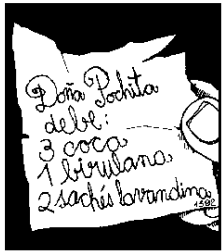 Doña Pochita
debe:
3 coca
1 birulana
2 sachés lavandina